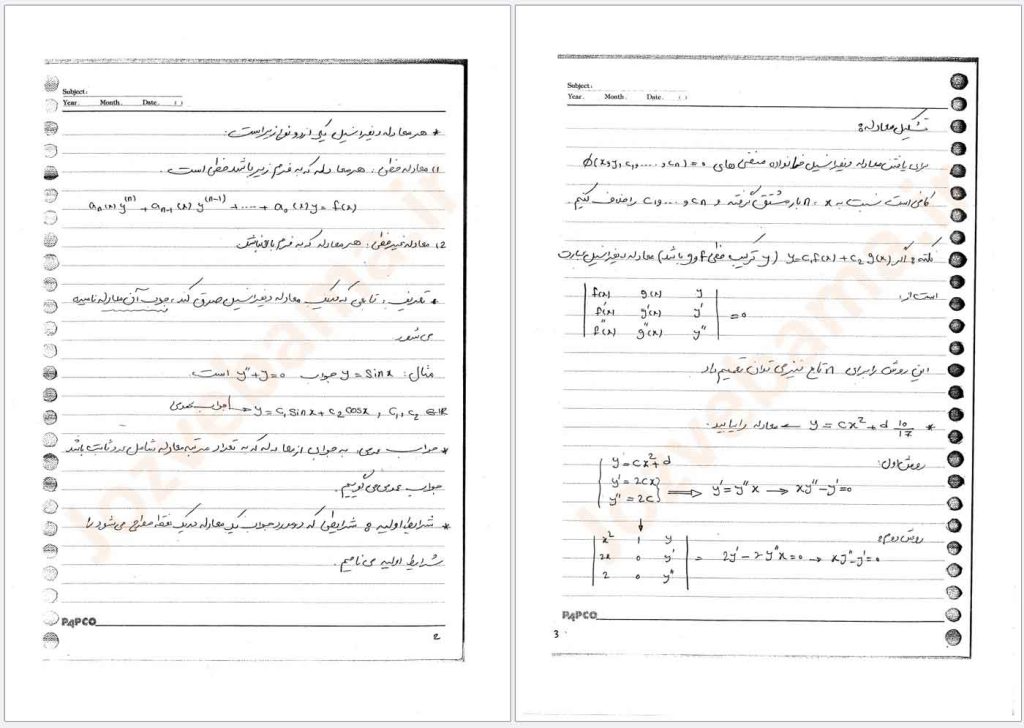 Subject:
Year. Month. Date. ( )
* هر معادله دیفرانسیل یکی از دو نوع زیر است:
۱) معادله خطی: هر معادله که به فرم زیر باشد خطی است.
aₙ(x) y⁽ⁿ⁾ + aₙ₋₁(x) y⁽ⁿ⁻¹⁾ + .... + a₀(x)y = f(x)
۲) معادله غیرخطی: هر معادله که به فرم بالا نباشد.
* تعریف: تابعی که در یک معادله دیفرانسیل صدق کند، جواب آن معادله نامیده
می شود
مثال: y = sinx جواب y″+y=0 است
y = c₁sinx + c₂cosx , c₁, c₂ ∈ IR جواب عمومی
* جواب عمومی: به جوابی از معادله که به تعداد مرتبه معادله شامل عدد ثابت باشد
جواب عمومی می گوییم.
* شرایط اولیه: شرایطی که در مورد جواب یک معادله در یک نقطه مطرح می شود را
شرایط اولیه می نامیم.
PAPCO
2
Subject:
Year. Month. Date. ( )
تشکیل معادله:
برای یافتن معادله دیفرانسیل خانواده منحنی های φ(x,y,c₁,....,cₙ)=0
کافی است نسبت به x، n بار مشتق گرفته و c₁,...,cₙ را حذف کنیم
نکته: اگر y=c₁f(x)+c₂g(x) (y ترکیب خطی f و g باشد) معادله دیفرانسیل عبارت
است از:
| f(x) g(x) y |
| f′(x) g′(x) y′ | = 0
| f″(x) g″(x) y″ |
این روش را برای n تابع نیز می توان تعمیم داد
* 10/17 y = cx²+d → معادله را بیابید.
روش اول:
y = cx²+d
y′ = 2cx
y″ = 2c ⟹ y′=y″x → xy″-y′=0
روش دوم:
| x² 1 y |
| 2x 0 y′ | = 2y′-2y″x=0 → xy″-y′=0
| 2 0 y″ |
PAPCO
3
jozvebama.ir
jozvebama.ir